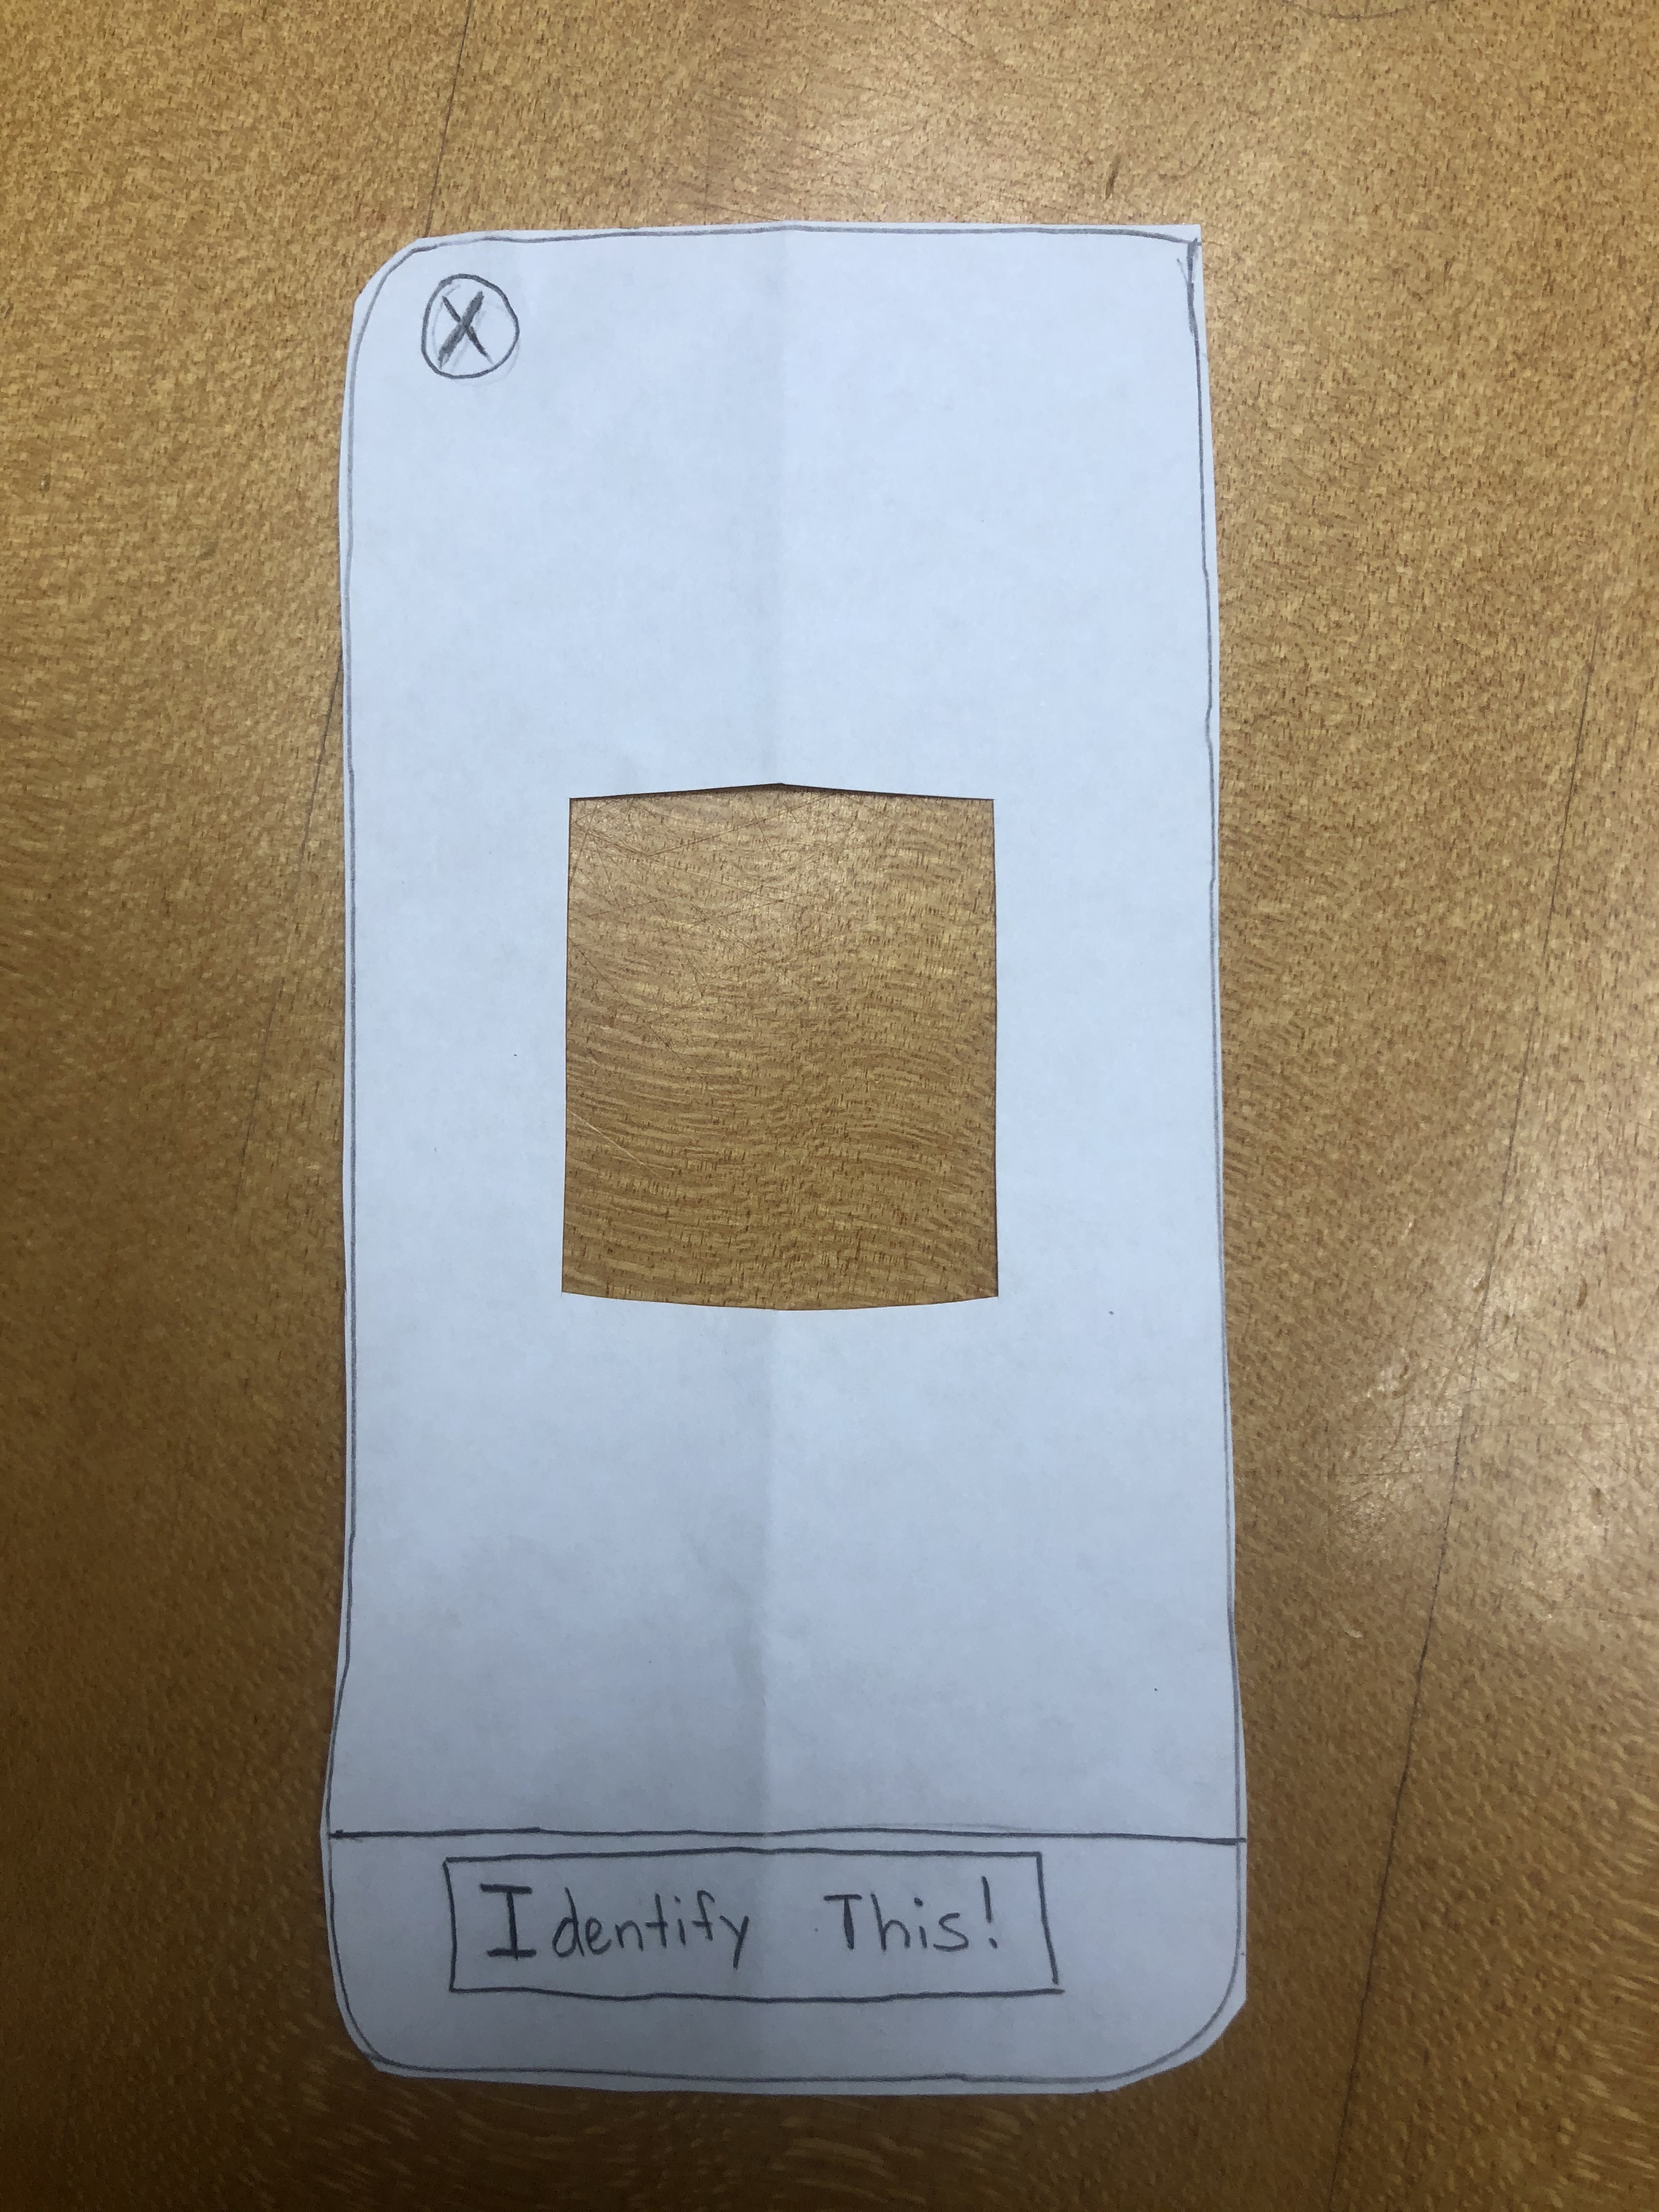 X
Identify This!